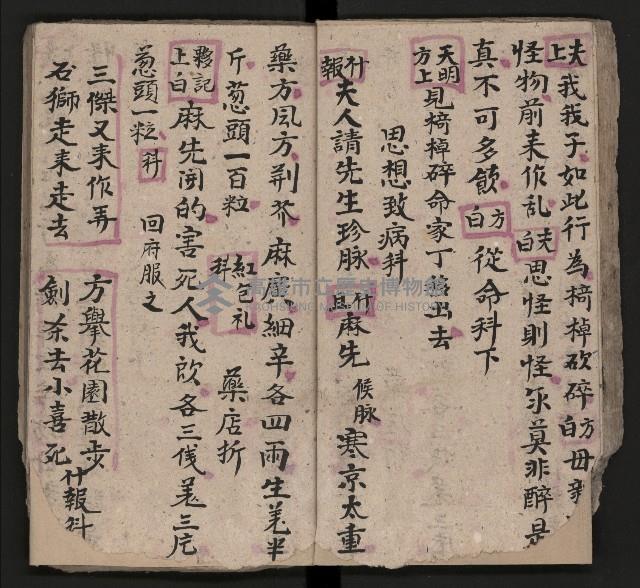 夫上我我子如此行為椅棹砍碎方白毌親
怪物前来作乱夫白思怪則怪汞莫非醉是
真不可多飲方白從命科下
天明方上見椅棹碎命家丁出去
思想致病科
什報夫人請先生珍脉什旦麻先候脉寒京太重
藥方風方荆芥麻黄細辛各四両生羗半
斤葱頭一百粒科紅包礼藥店折
夥記上白麻先開的害死人我改各三伐羗三庀
葱頭一粒科回府服之
三傑又来作弄方舉花園散步
石獅走来走去劍杀去小喜死什報科
高雄市立歷史博物館
KAOHSIUNG MUSEUM OF HISTORY